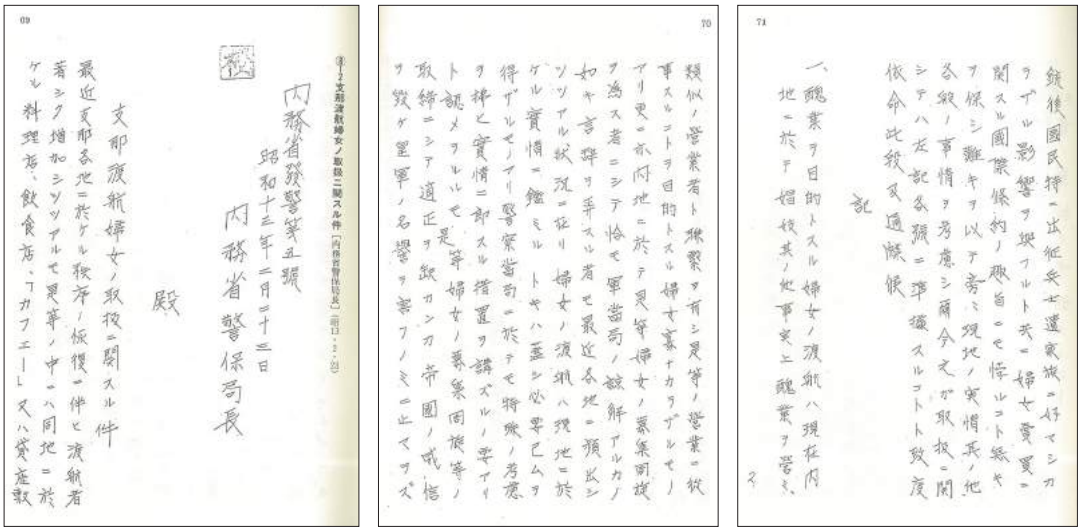 69
③-2 支那渡航婦女ノ取扱ニ関スル件〔内務省警保局長〕(昭13・2・23)
内務省發警第五號
昭和十三年二月二十三日
内務省警保局長
殿
支那渡航婦女ノ取扱ニ関スル件
最近支那各地ニ於ケル秩序ノ恢復ニ伴ヒ渡航者
著シク増加シツツアルモ是等ノ中ニハ同地ニ於
ケル料理店、飲食店、「カフエー」又ハ貸座敷
70
類似ノ營業者ト聯繋ヲ有シ是等ノ營業ニ従
事スルコトヲ目的トスル婦女寡ナカラザルモノ
アリ更ニ亦内地ニ於テ是等婦女ノ募集周旋
ヲ為ス者ニシテ恰モ軍當局ノ諒解アルカノ
如キ言辞ヲ弄スル者モ最近各地ニ頻出シ
ツツアル状況ニ在リ婦女ノ渡航ハ現地ニ於
ケル實情ニ鑑ミルトキハ蓋シ必要已ムヲ
得ザルモノアリ警察當局ニ於テモ特殊ノ考慮
ヲ拂ヒ實情ニ即スル措置ヲ講ズルノ要アリ
ト認メラルルモ是等婦女ノ募集周旋等ノ
取締ニシテ適正ヲ缺カンカ帝國ノ威信
ヲ毀ケ皇軍ノ名譽ヲ害フノミニ止マラズ
71
銃後國民特ニ出征兵士遺家族ニ好マシカ
ラザル影響ヲ與フルト共ニ婦女賣買ニ
関スル國際條約ノ趣旨ニモ悖ルコト無キ
ヲ保シ難キヲ以テ旁〻現地ノ実情其ノ他
各般ノ事情ヲ考慮シ爾今之ガ取扱ニ関
シテハ左記各號ニ準據スルコトト致度
依命此段及通牒候
記
一、醜業ヲ目的トスル婦女ノ渡航ハ現在内
地ニ於テ娼妓其ノ他事実上醜業ヲ營ミ、